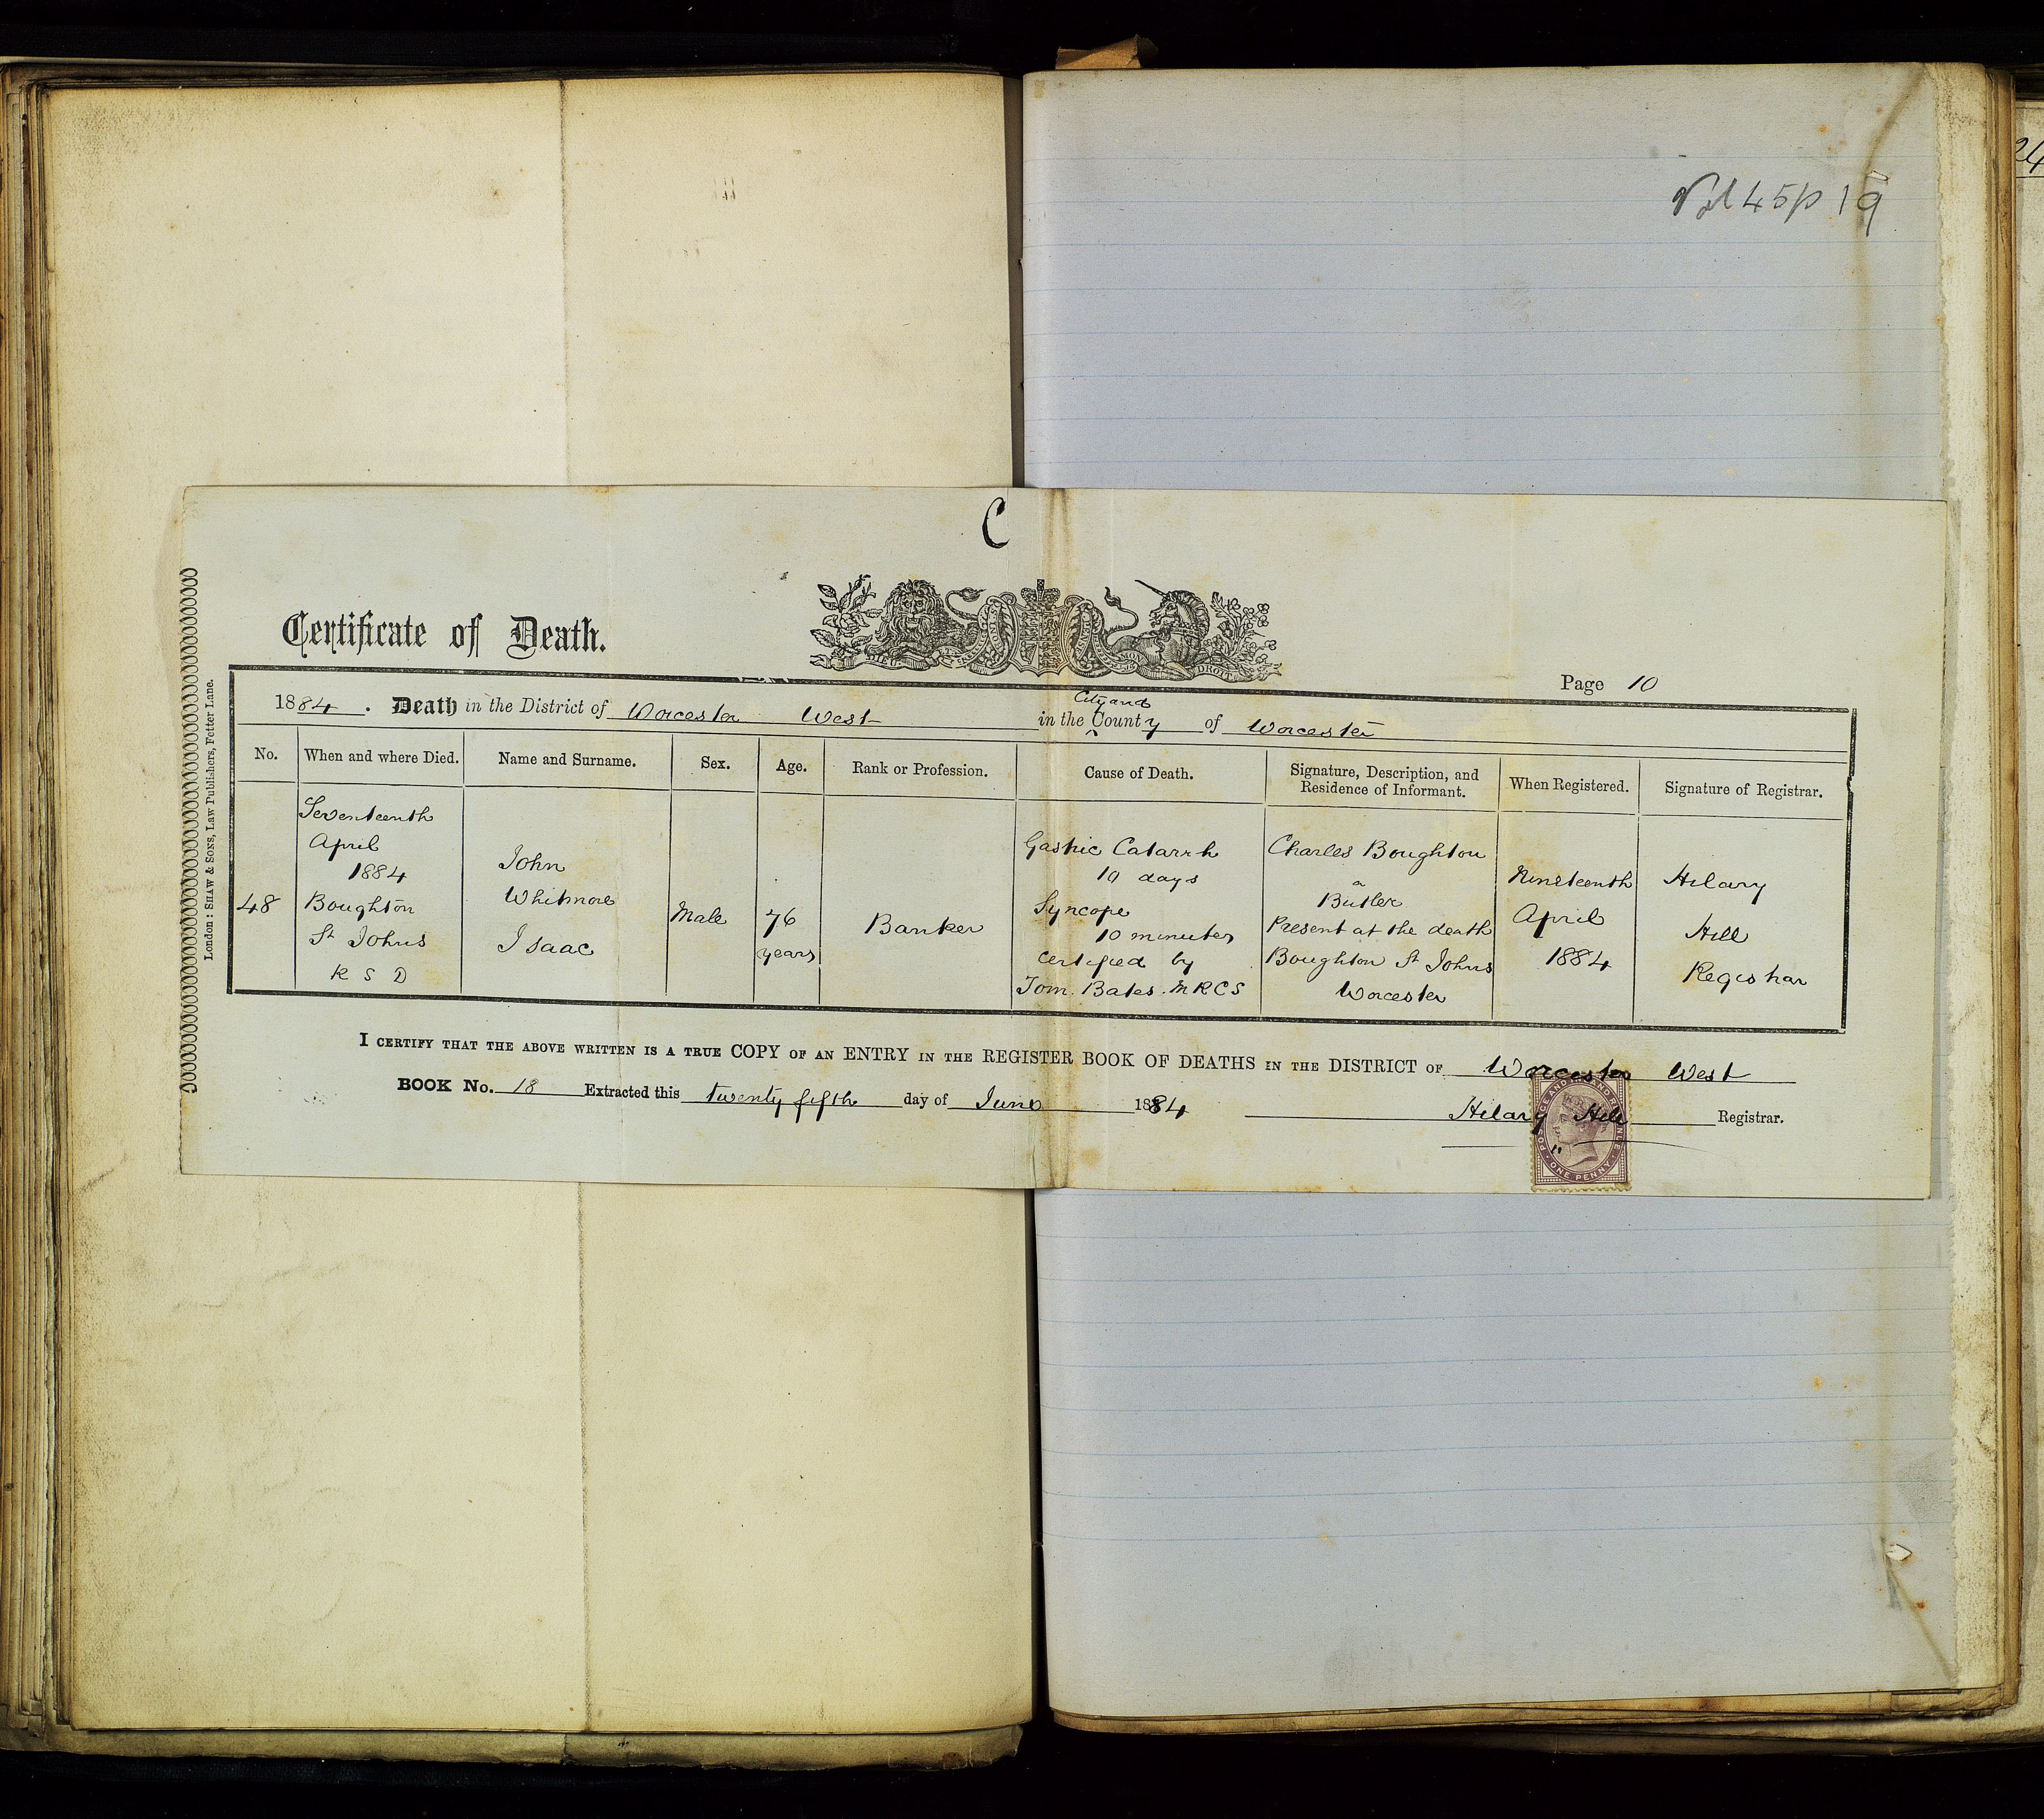 24
Vol 45 p 19
C
Certificate of Death.
DIEU ET MON DROIT
Page 10
1884. Death in the District of Worcester West in the City and County of Worcester
No.
When and where Died.
Name and Surname.
Sex.
Age.
Rank or Profession.
Cause of Death.
Signature, Description, and
Residence of Informant.
When Registered.
Signature of Registrar.
48
Seventeenth
April
1884
Boughton
St Johns
R S D
John
Whitmore
Isaac
Male
76
years
Banker
Gastric Catarrh
10 days
Syncope
10 minutes
Certified by
Tom. Bates. MRCS
Charles Boughton
a
Butler
Present at the death
Boughton St Johns
Worcester
Nineteenth
April
1884
Hilary
Hill
Registrar
I CERTIFY THAT THE ABOVE WRITTEN IS A TRUE COPY OF AN ENTRY IN THE REGISTER BOOK OF DEATHS IN THE DISTRICT OF Worcester West
BOOK No. 18 Extracted this twenty fifth day of June 1884 Hilary Hill Registrar.
POSTAGE AND INLAND REVENUE
ONE PENNY
London: SHAW & SONS, Law Publishers, Fetter Lane.